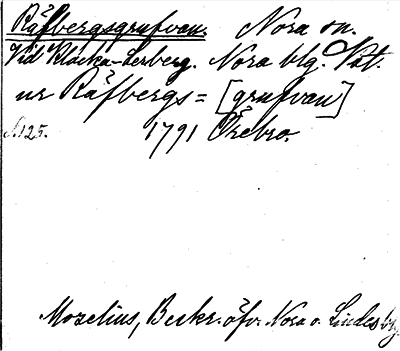 Räfbergsgrufvan. Nora sn.
Vid Klacka-Lerberg. Nora blg. Vat.
ur Räfbergs= [grufvan]
s. 125. 1791 Örebro.
Mozelius, Beskr. öfv. Nora o. Lindesbg.